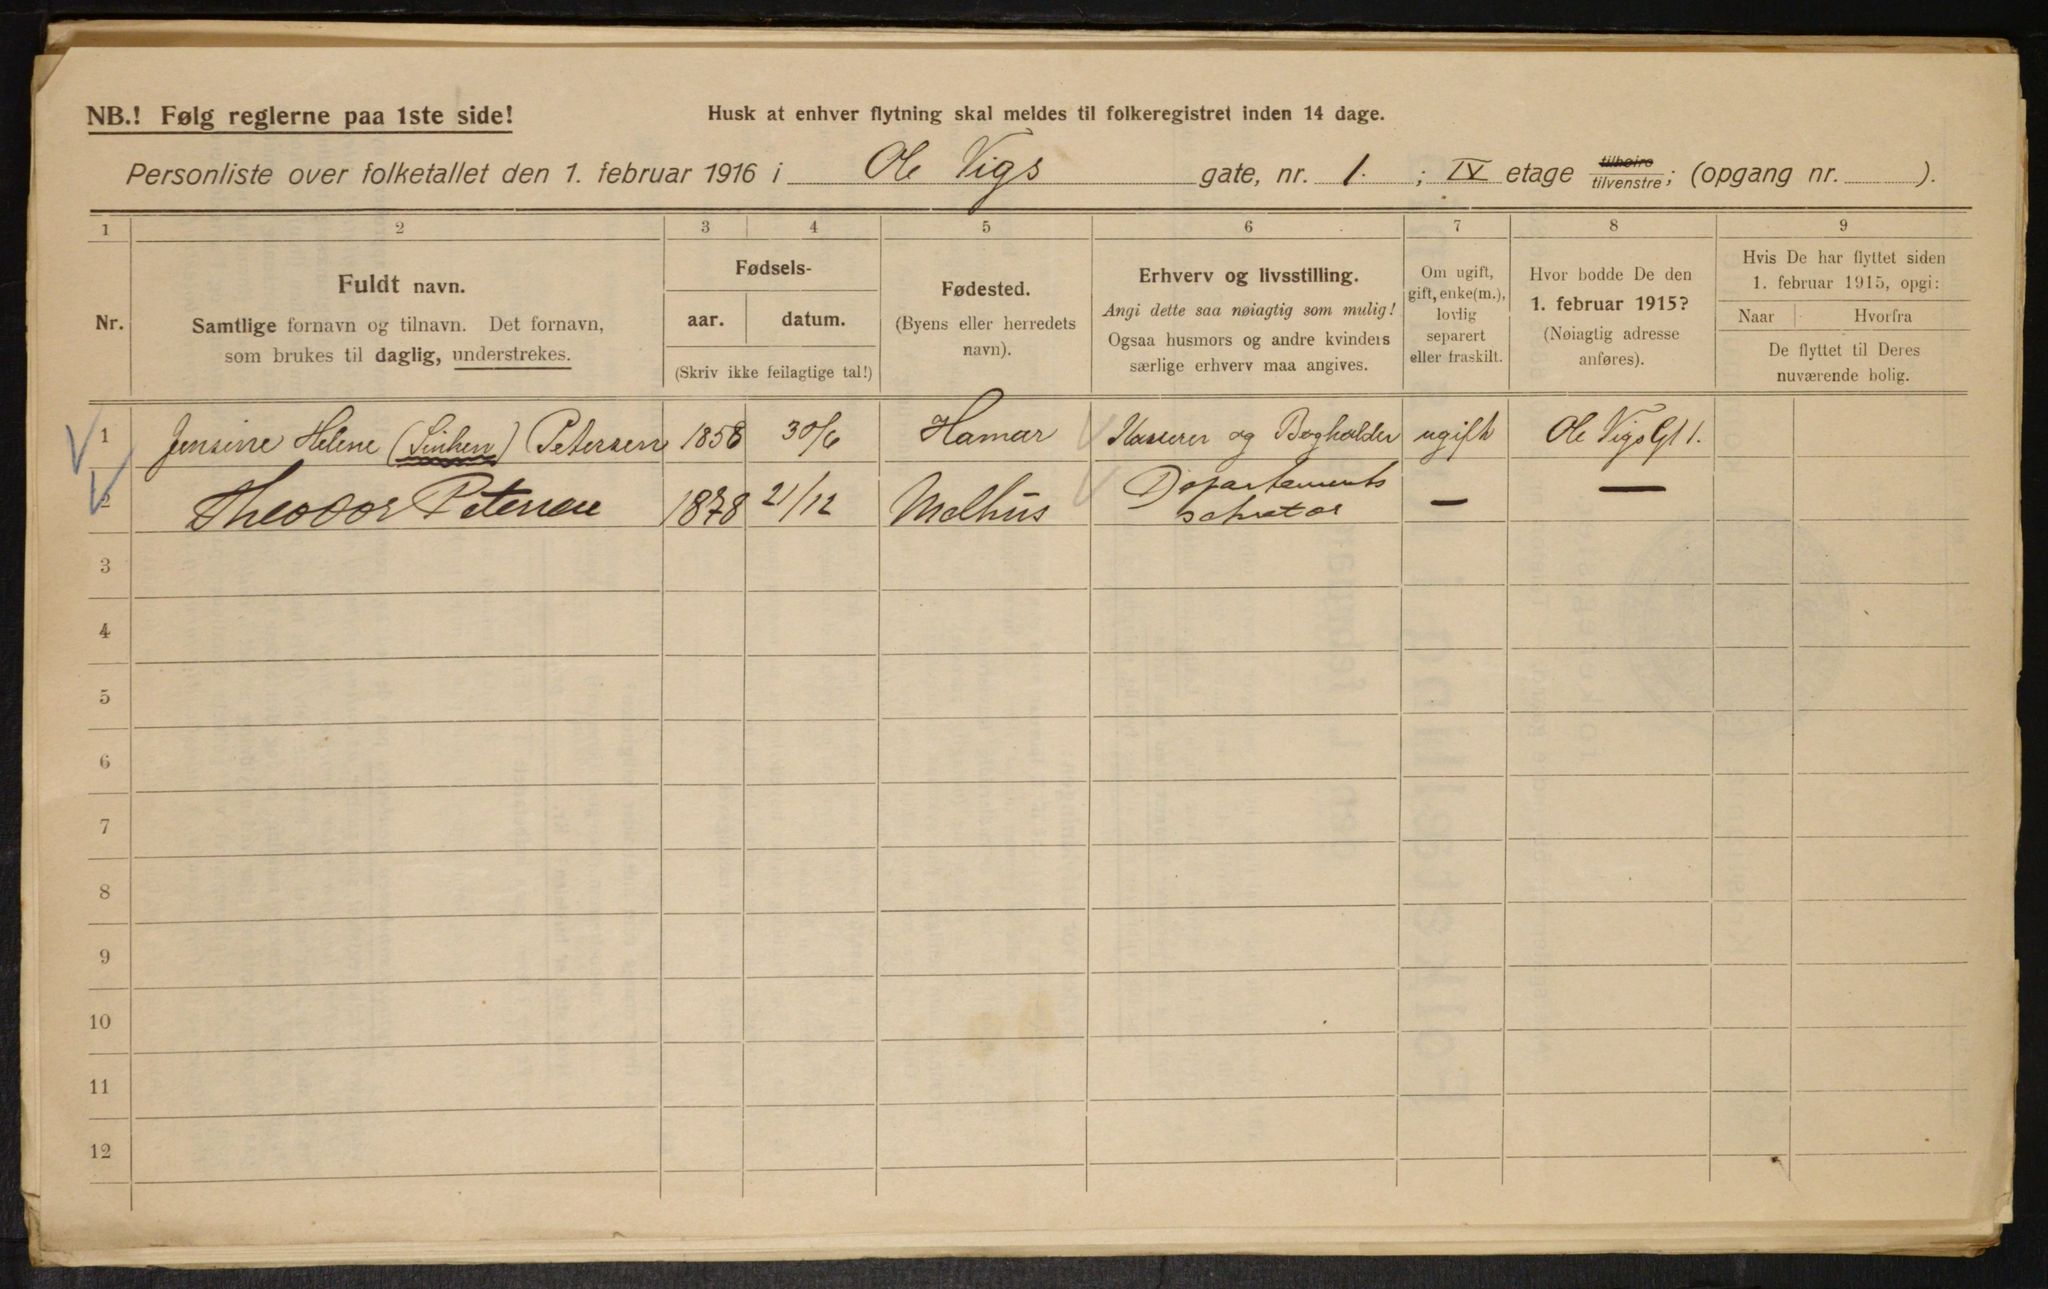 NB.! Følg reglerne paa 1ste side!
Husk at enhver flytning skal meldes til folkeregistret inden 14 dage.
Personliste over folketallet den 1. februar 1916 i Ole Vigs gate, nr. 1. ; IV etage tilhøire tilvenstre; (opgang nr. ).
1 2 3 4 5 6 7 8 9
Nr.
Fuldt navn.
Samtlige fornavn og tilnavn. Det fornavn,
som brukes til daglig, understrekes.
Fødsels-
aar. datum.
(Skriv ikke feilagtige tal!)
Fødested.
(Byens eller herredets
navn).
Erhverv og livsstilling.
Angi dette saa nøiagtig som mulig!
Ogsaa husmors og andre kvinders
særlige erhverv maa angives.
Om ugift,
gift, enke(m.),
lovlig
separert
eller fraskilt.
Hvor bodde De den
1. februar 1915?
(Nøiagtig adresse
anføres).
Hvis De har flyttet siden
1. februar 1915, opgi:
Naar Hvorfra
De flyttet til Deres
nuværende bolig.
1 Jensine Helene Petersen 1858 30/6 Hamar Kasserer og Bogholder ugift Ole Vigs Gt 1.
2 Theodor Petersen 1878 21/12 Melhus Departements sekretær — —
3
4
5
6
7
8
9
10
11
12